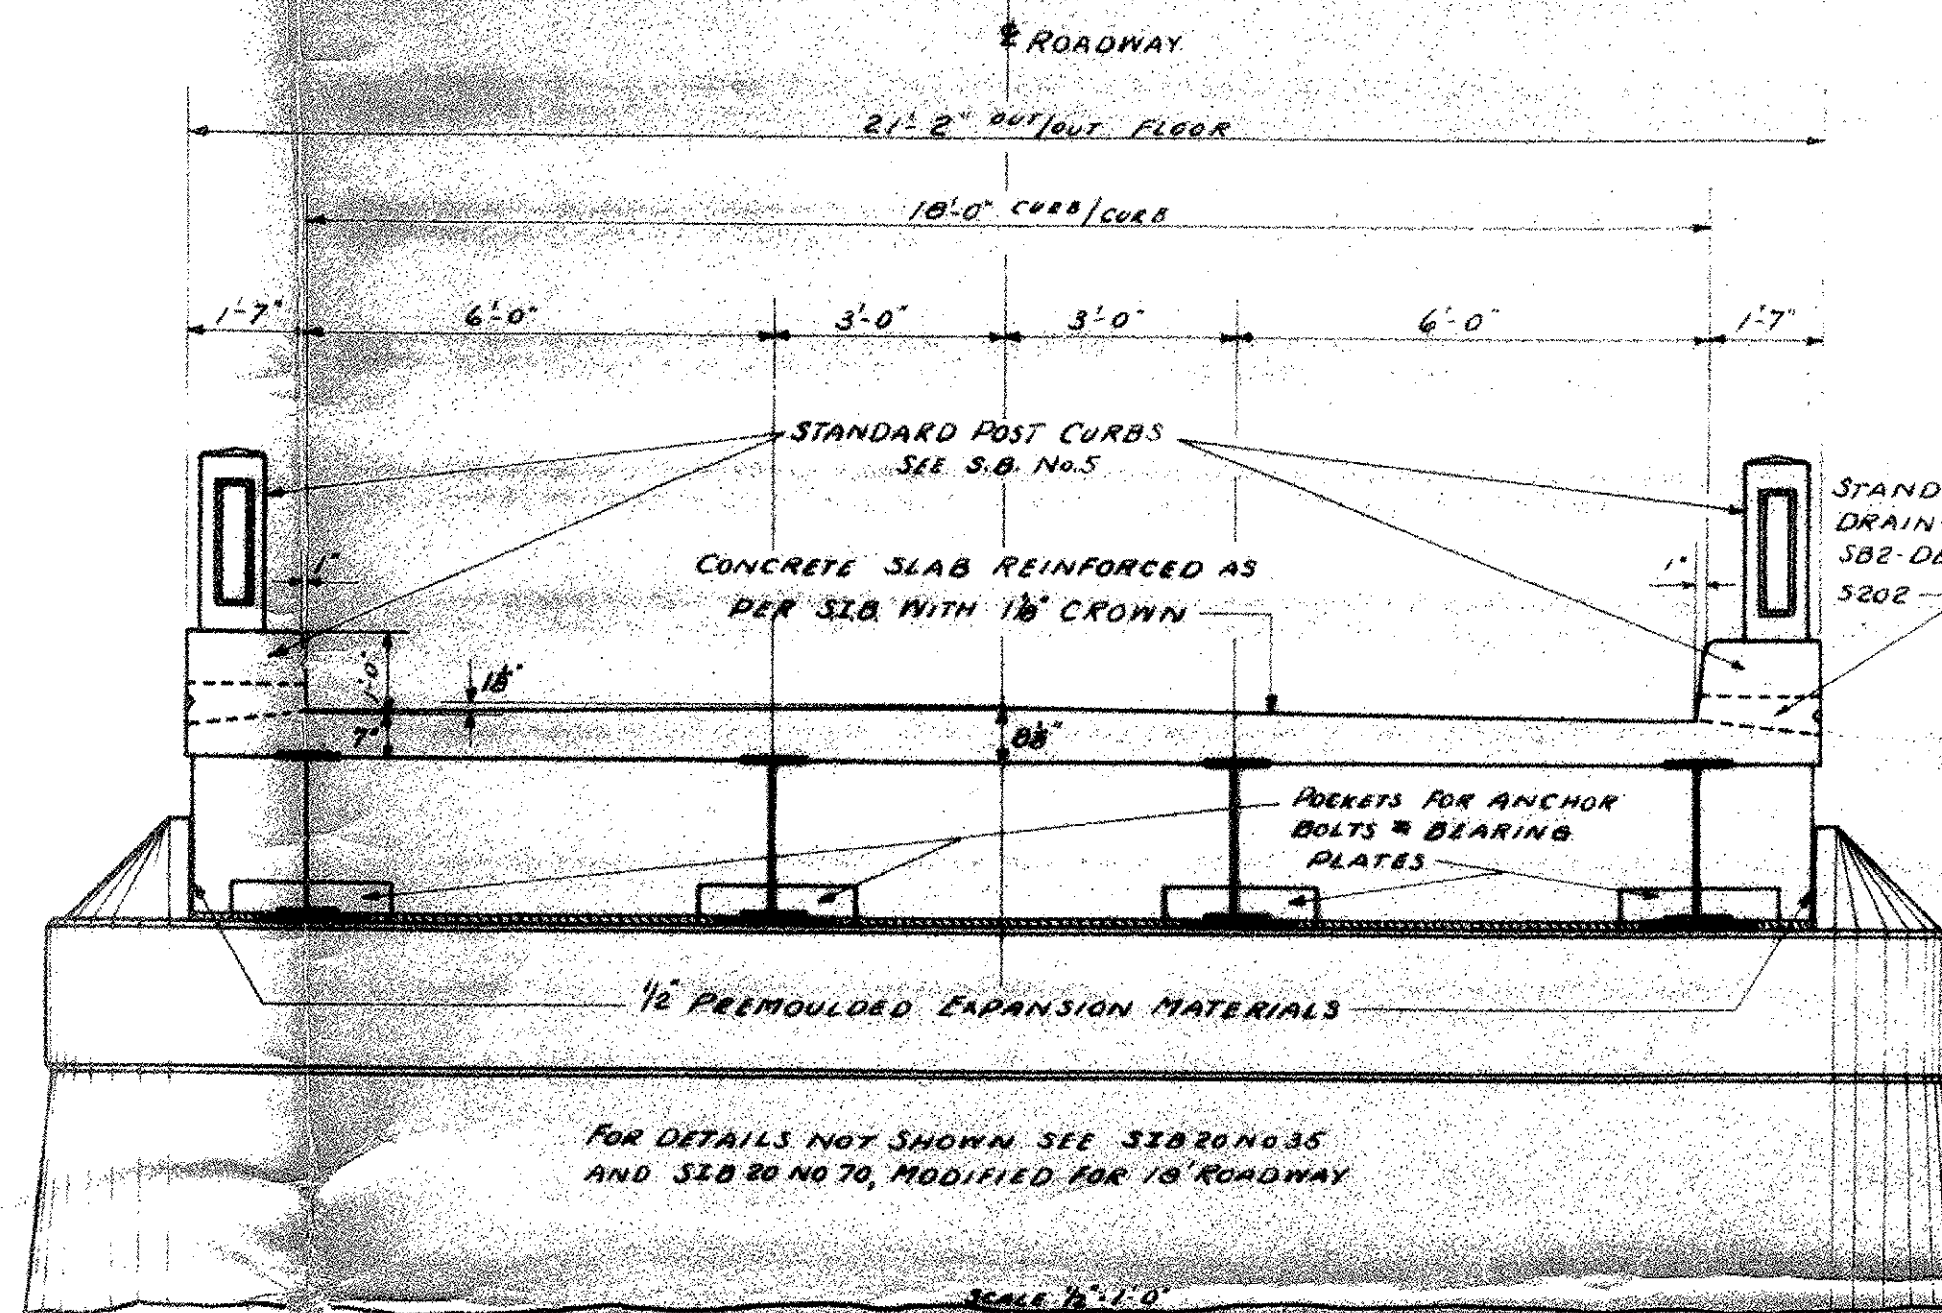 ℄ ROADWAY
21'-2" OUT/OUT FLOOR
18'-0" CURB/CURB
1'-7" 6'-0" 3'-0" 3'-0" 6'-0" 1'-7"
STANDARD POST CURBS
SEE S.B. No.5
STAND
DRAIN
SB2-DE
S202
1"
1"
CONCRETE SLAB REINFORCED AS
PER SIB WITH 1⅛" CROWN
1'-0"
1⅛"
7"
8⅛"
POCKETS FOR ANCHOR
BOLTS & BEARING
PLATES
1/2" PREMOULDED EXPANSION MATERIALS
FOR DETAILS NOT SHOWN SEE SIB 20 NO 35
AND SIB 20 NO 70, MODIFIED FOR 18' ROADWAY
SCALE ½"=1'-0"